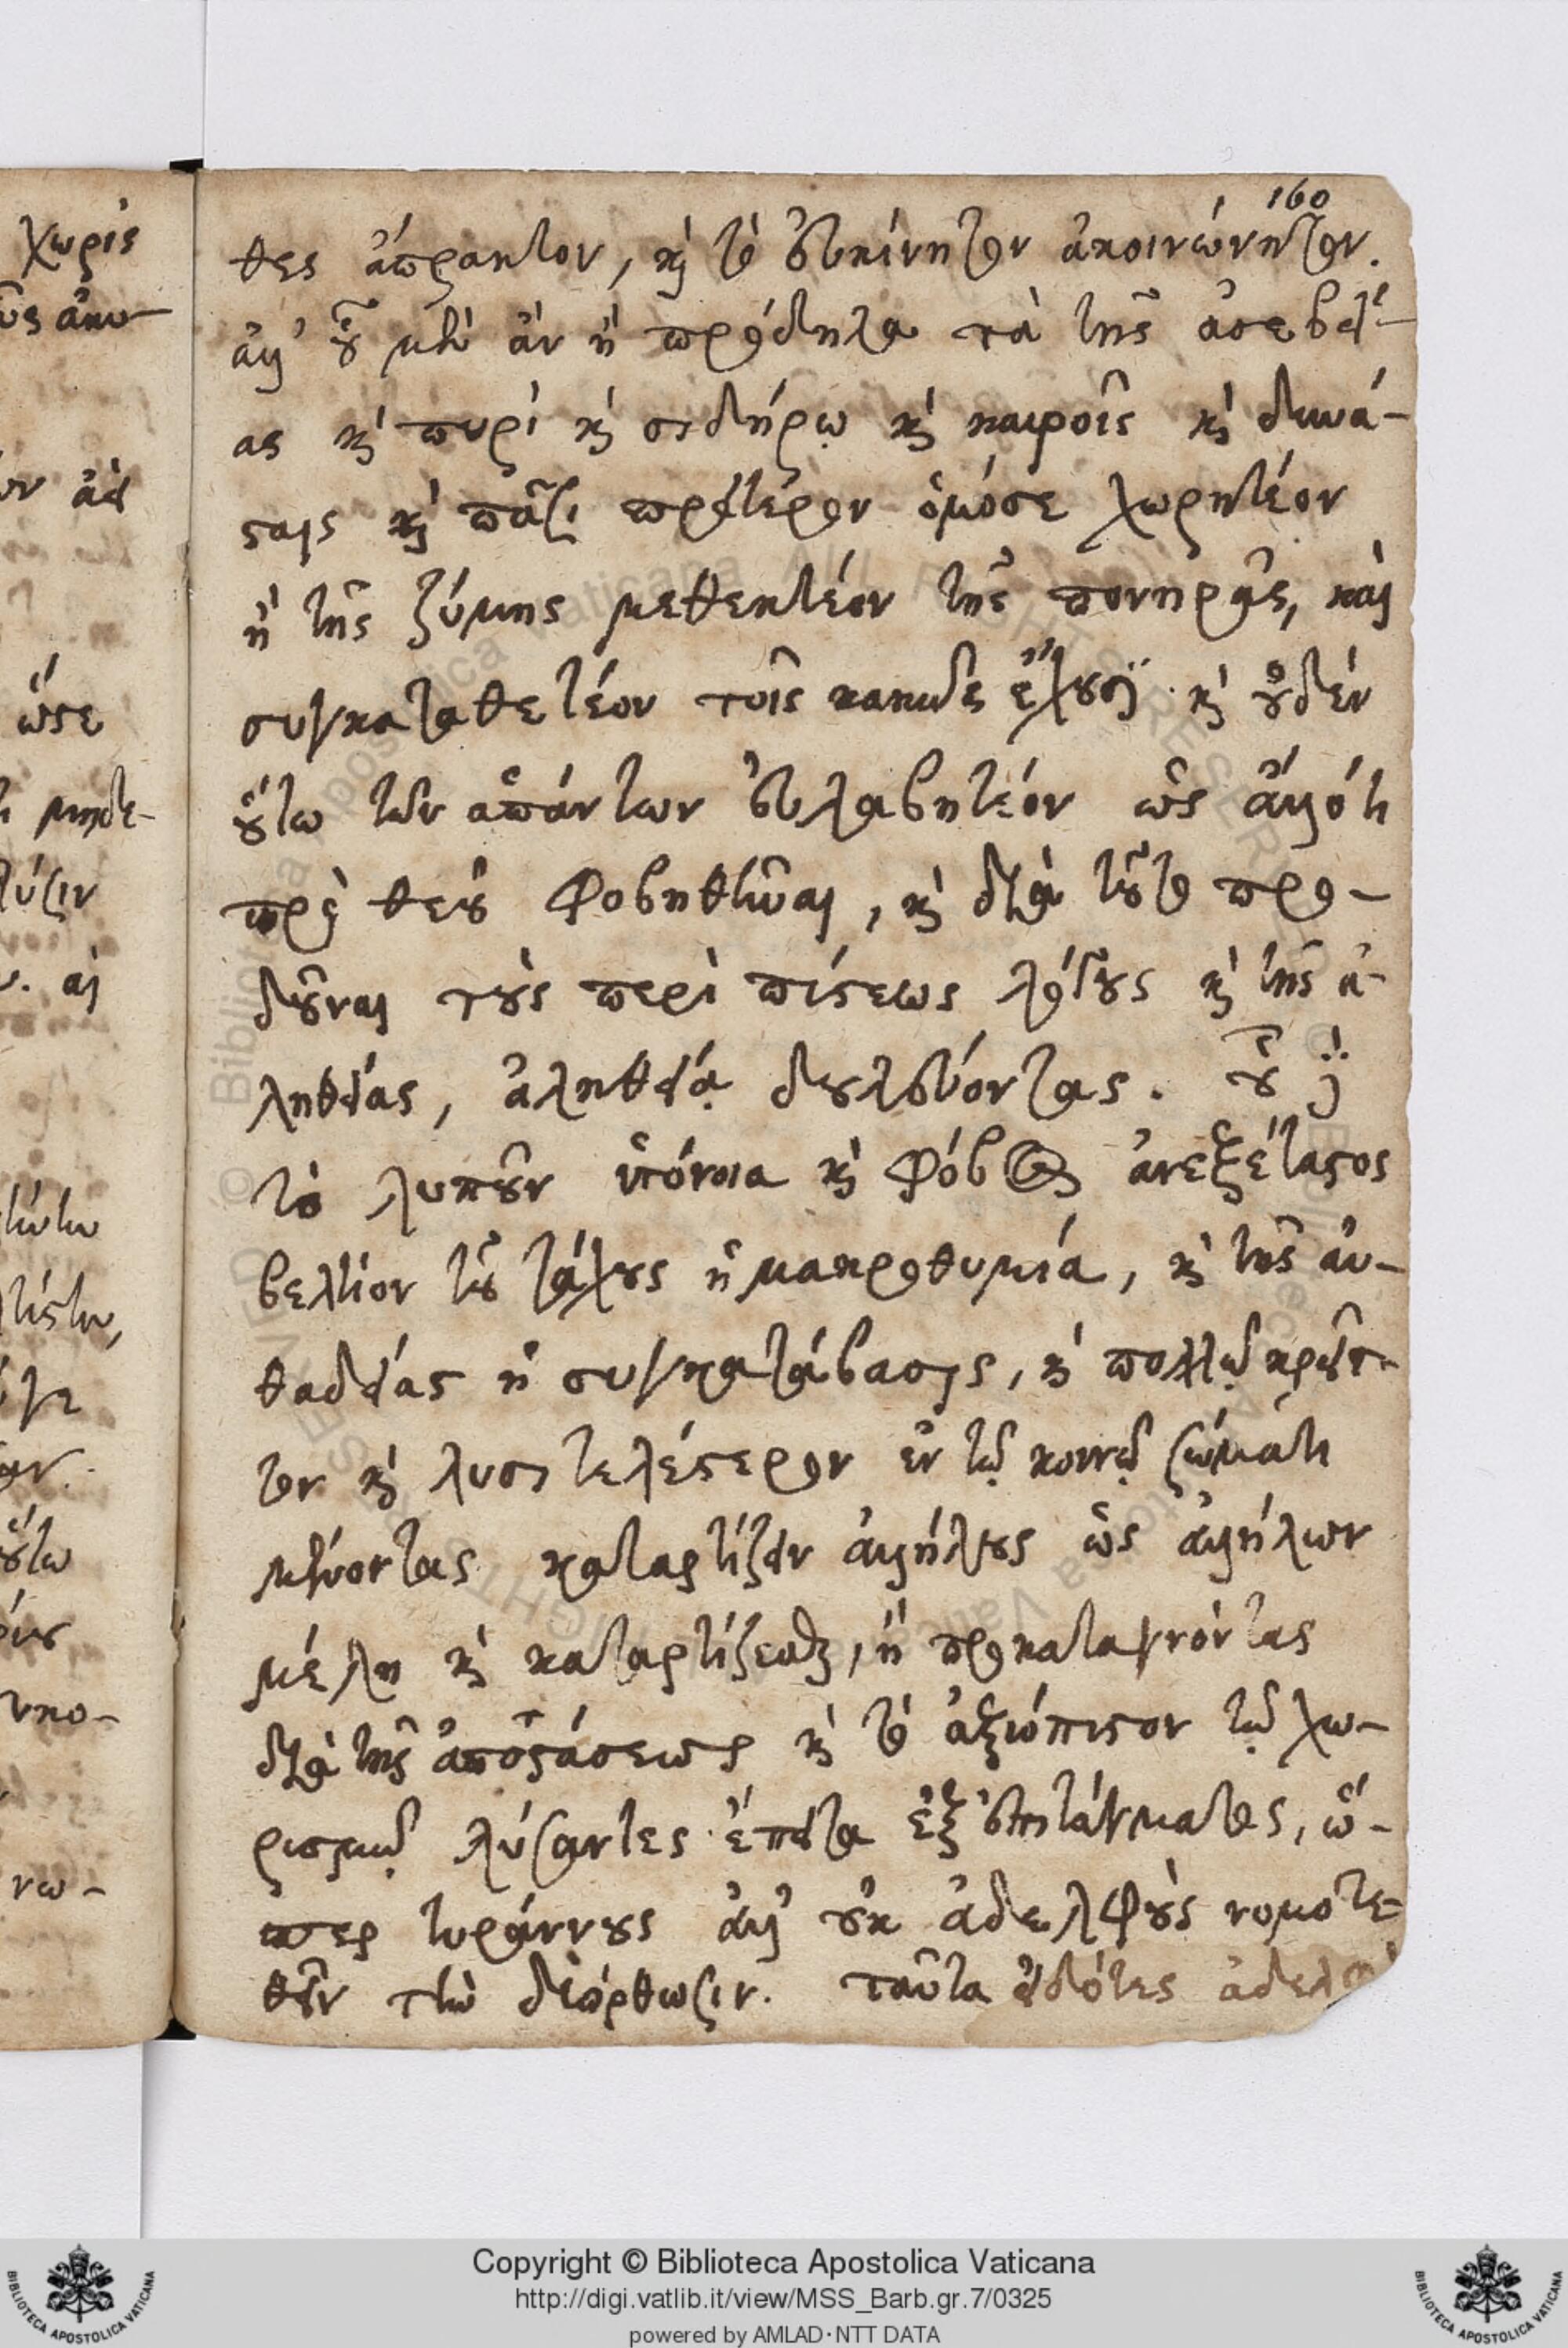 160
θες ἄπρακτον, καὶ τὸ εὐκίνητον ἀκοινώνητον.
ἀλλ' οὗ μὲν ἂν ᾖ πρόδηλα τὰ τῆς ἀσεβεί-
ας καὶ πυρὶ καὶ σιδήρῳ καὶ καιροῖς καὶ δυνά-
σταις καὶ πᾶσι πρότερον ὁμόσε χωρητέον
ἢ τῆς ζύμης μεθεκτέον τῆς πονηρᾶς, καὶ
συγκαταθετέον τοῖς κακῶς ἔχουσι· καὶ οὐδὲν
οὕτω τῶν ἁπάντων εὐλαβητέον ὡς ἄλλό τι
πρὸ θεοῦ φοβηθῆναι, καὶ διὰ τοῦτο προ-
δοῦναι τοὺς περὶ πίστεως λόγους καὶ τῆς ἀ-
ληθείας, ἀληθείᾳ δουλεύοντας. οὗ δὲ
τὸ λυποῦν ὑπόνοια καὶ φόβος ἀνεξέταστος
βέλτιον τοῦ τάχους ἡ μακροθυμία, καὶ τῆς αὐ-
θαδείας ἡ συγκατάβασις, καὶ πολλῷ κρεῖτ-
τον καὶ λυσιτελέστερον ἐν τῷ κοινῷ σώματι
μένοντας καταρτίζειν ἀλλήλους ὡς ἀλλήλων
μέλη καὶ καταρτίζεσθαι, ἢ προκαταγνόντας
διὰ τῆς ἀποστάσεως καὶ τὸ ἀξιόπιστον τῷ χω-
ρισμῷ λύσαντες ἔπειτα ἐξ ἐπιτάγματος, ὥ-
σπερ τυράννους ἀλλ' οὐκ ἀδελφοὺς νομοτε-
θεῖν τὴν διόρθωσιν. ταῦτα εἰδότες ἀδελφοὶ
χωρὶς
ὥστε
μηδε-
λύσιν
οὕτω
νω-
Copyright © Biblioteca Apostolica Vaticana
http://digi.vatlib.it/view/MSS_Barb.gr.7/0325
powered by AMLAD·NTT DATA
BIBLIOTECA APOSTOLICA VATICANA
BIBLIOTECA APOSTOLICA VATICANA